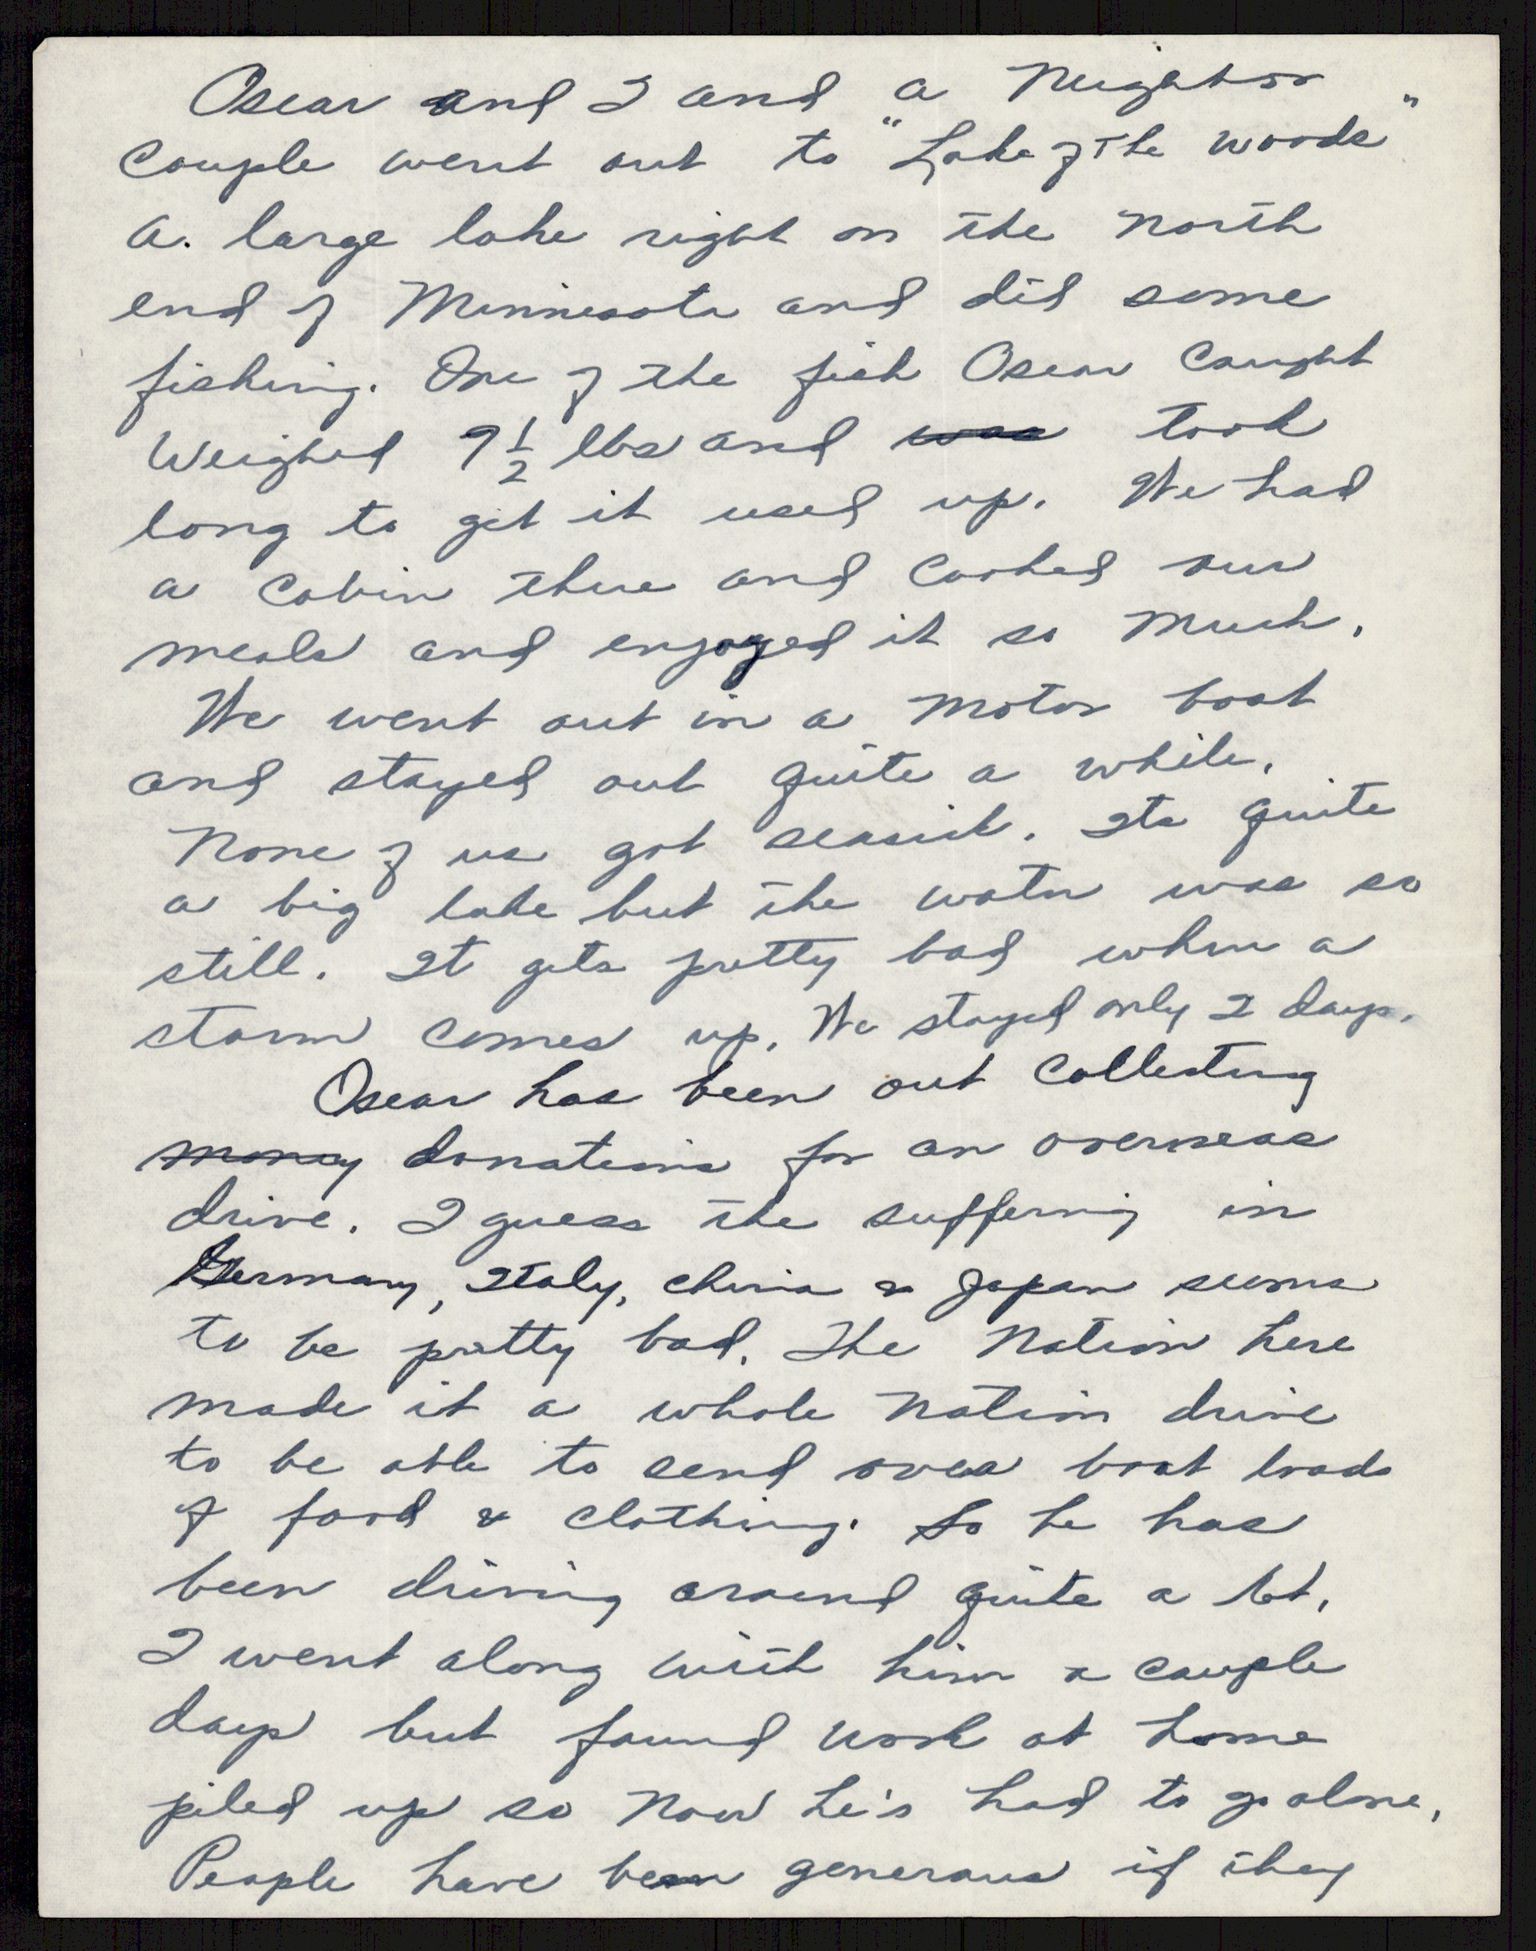 Oscar and I and a Neighbor
Couple went out to "Lake of the woods"
a. large lake right on the North
end of Minnesota and did some
fishing. One of the fish Oscar Caught
Weighed 9 1/2 lbs and was took
long to get it used up. We had
a Cabin there and Cooked our
meals and enjoyed it so Much.
We went out in a Motor boat
and stayed out quite a while.
None of us got seasick. Its quite
a big lake but the water was so
still. It gets pretty bad when a
storm comes up. We stayed only 2 days.
Oscar has been out Collecting
money donations for an overseas
drive. I guess the suffering in
Germany, Italy, China & Japan seems
to be pretty bad. The Nation here
made it a whole Nation drive
to be able to send over boat loads
of food & clothing. So he has
been driving around quite a lot.
I went along with him a couple
days but found work at home
piled up so Now he's had to go alone.
People have been generous if they